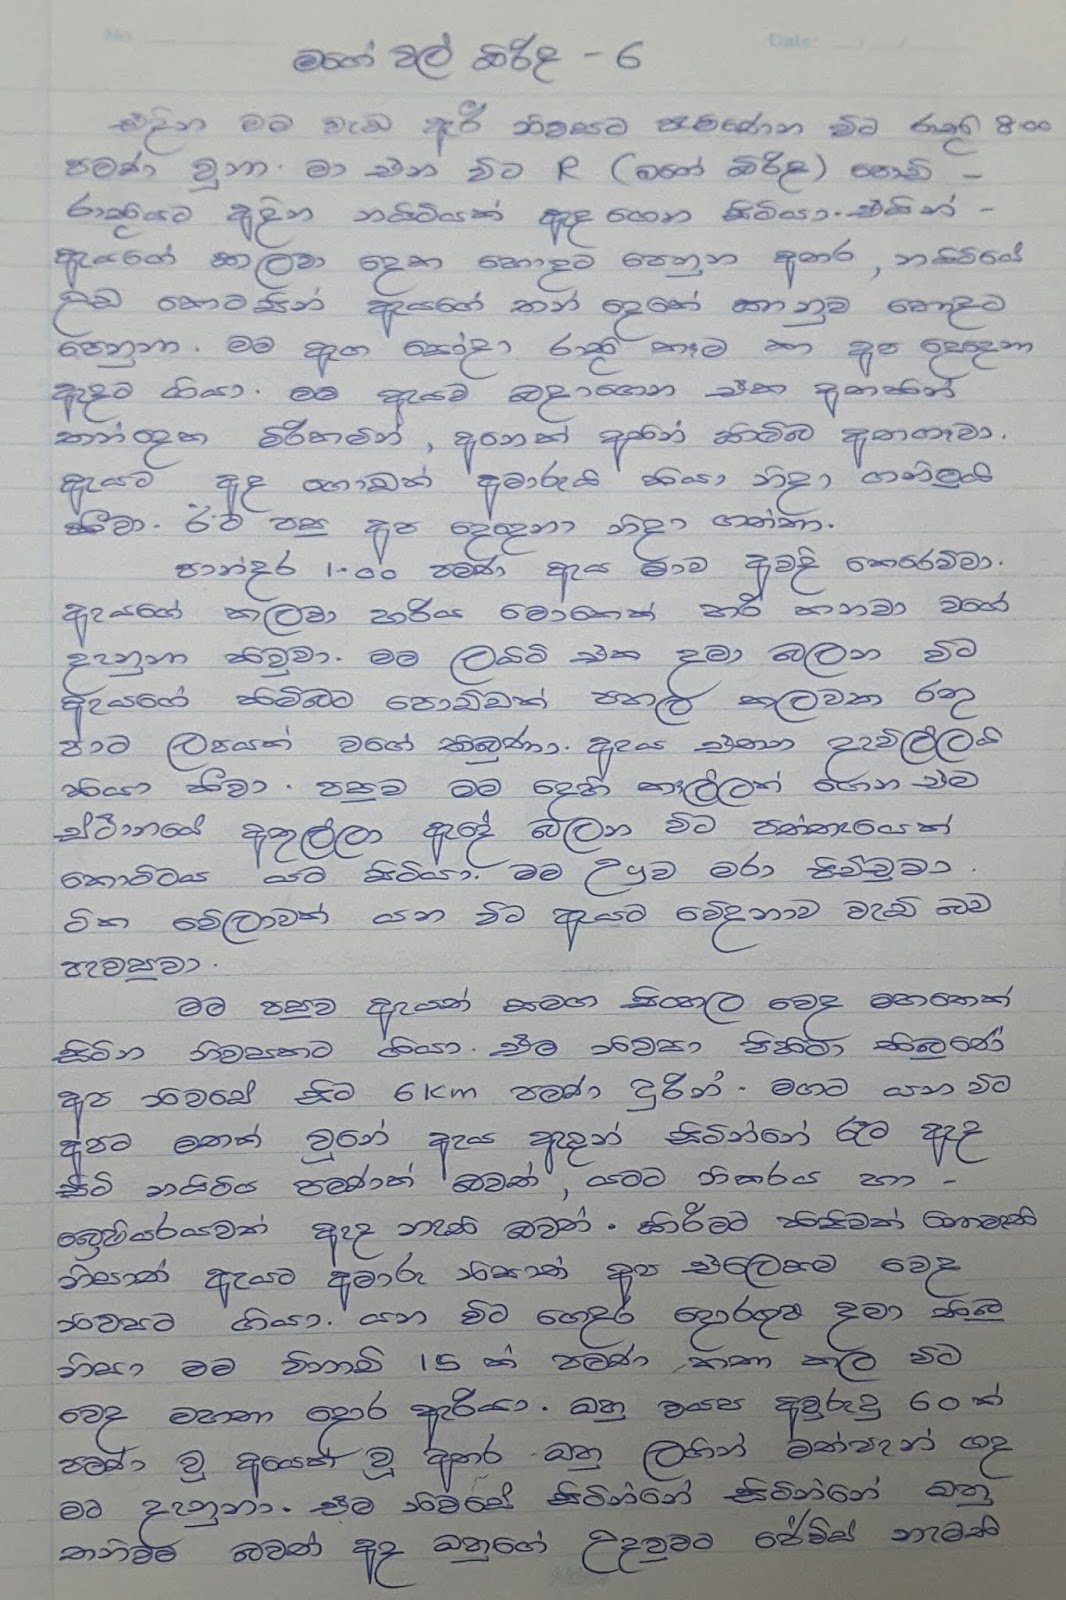 මගේ වල් බිරිඳ - 6
එදින මම වැඩ ඇරී නිවසට පැමිණෙන විට රාත්‍රී 8.00
පමණ වුනා. මා එන විට R (මගේ බිරිඳ) පොඩි -
රාත්‍රියට අඳින නයිටියක් ඇඳ ගෙන සිටියා. එයින් -
ඇයගේ කලවා දෙක හොඳට පෙනුන අතර, නයිටියේ
උඩ කොටසින් ඇයගේ තන් දෙකේ කානුව හොඳට
පෙනුනා. මම ඇඟ සෝදා රාත්‍රී කෑම කා අප දෙදෙනා
ඇඳට ගියා. මම ඇයව බදාගෙන එක අතකින්
තන් දෙක මිරිකමින්, අනෙක් අතින් කටුව අතගෑවා.
ඇයට අද ගොඩක් අමාරුයි කියා නිදා ගනිමුයි
කීවා. ඊට පසු අප දෙදෙනා නිදා ගත්තා.
පාන්දර 1.00 පමණ ඇය මාව අවදි කෙරෙව්වා.
ඇයගේ කලවා හරිය මොකෙක් හරි කනවා වගේ
දැනුනා කිවුවා. මම ලයිට් එක දමා බලන විට
ඇයගේ කිම්බට පොඩ්ඩක් පහළ කලවක රතු
පාට ලපයක් වගේ තිබුණා. ඇය එතන දැවිල්ලයි
කියා කීවා. පසුව මම දෙහි කෑල්ලක් ගෙන එම
ස්ථානයේ අතුල්ලා ඇඳේ බලන විට පත්තෑයෙක්
කොට්ටය යට සිටියා. මම උගුව මරා පිච්චුවා.
ටික වේලාවක් යන විට ඇයට වේදනාව වැඩි බව
පැවසුවා.
මම පසුව ඇයත් සමග සිංහල වෙද මහතෙක්
සිටින නිවසකට ගියා. එම නිවස පිහිටා තිබුණේ
අප නිවසේ සිට 6 km පමණ දුරින්. මගට යන විට
අපට මතක් වුනේ ඇය ඇඳන් සිටින්නේ රෑට ඇඳ
සිටි නයිටිය පමණක් බවත්, යටට නිකරය හා -
බ්‍රෙසියරයවත් ඇඳ නැති බවත්. කිරීමට කිසිවක්
නිසාත් ඇයට අමාරු නිසාත් අප එලෙසම වෙද
නිවසට ගියා. යන විට ගෙදර දොරගුළු දමා තිබූ
නිසා මම විනාඩි 15 ක් පමණ කතා කල විට
වෙද මහතා දොර ඇරියා. ඔහු වයස අවුරුදු 60 ක්
පමණ වූ අයෙක් වූ අතර ඔහු ලගින් මත්පැන් ගඳ
මට දැනුනා. එම නිවසේ සිටින්නේ සිටින්නේ ඔහු
තනිවම බවත් අද ඔහුගේ උදවුවට ජේවිස් නැමති